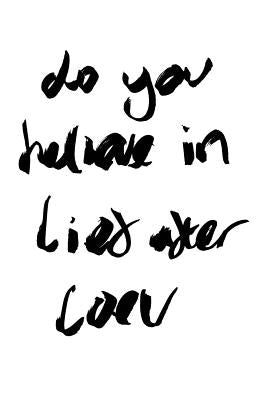 do you
beliave in
lief after
loev